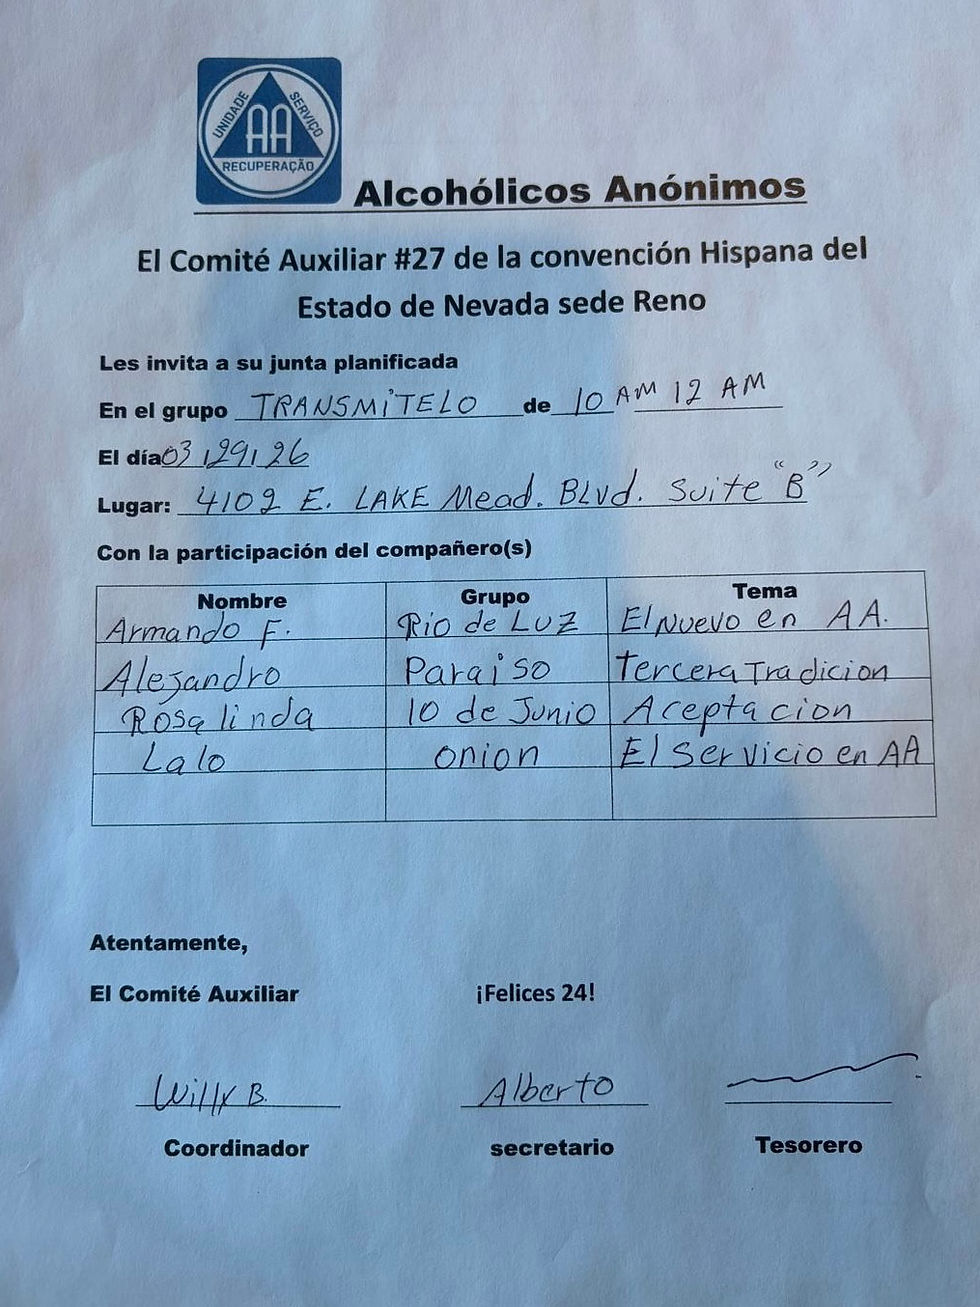 UNIDADE SERVIÇO
AA
RECUPERAÇÃO
Alcohólicos Anónimos
El Comité Auxiliar #27 de la convención Hispana del
Estado de Nevada sede Reno
Les invita a su junta planificada
En el grupo TRANSMITELO de 10 AM 12 AM
El día 03/29/26
Lugar: 4102 E. LAKE Mead. BLVd. Suite "B"
Con la participación del compañero(s)
Nombre Grupo Tema
Armando F. Rio de LUZ El Nuevo en AA.
Alejandro Paraiso Tercera Tradicion
Rosalinda 10 de Junio Aceptacion
Lalo onion El Servicio en AA
Atentamente,
El Comité Auxiliar ¡Felices 24!
Willy B. Alberto
Coordinador secretario Tesorero